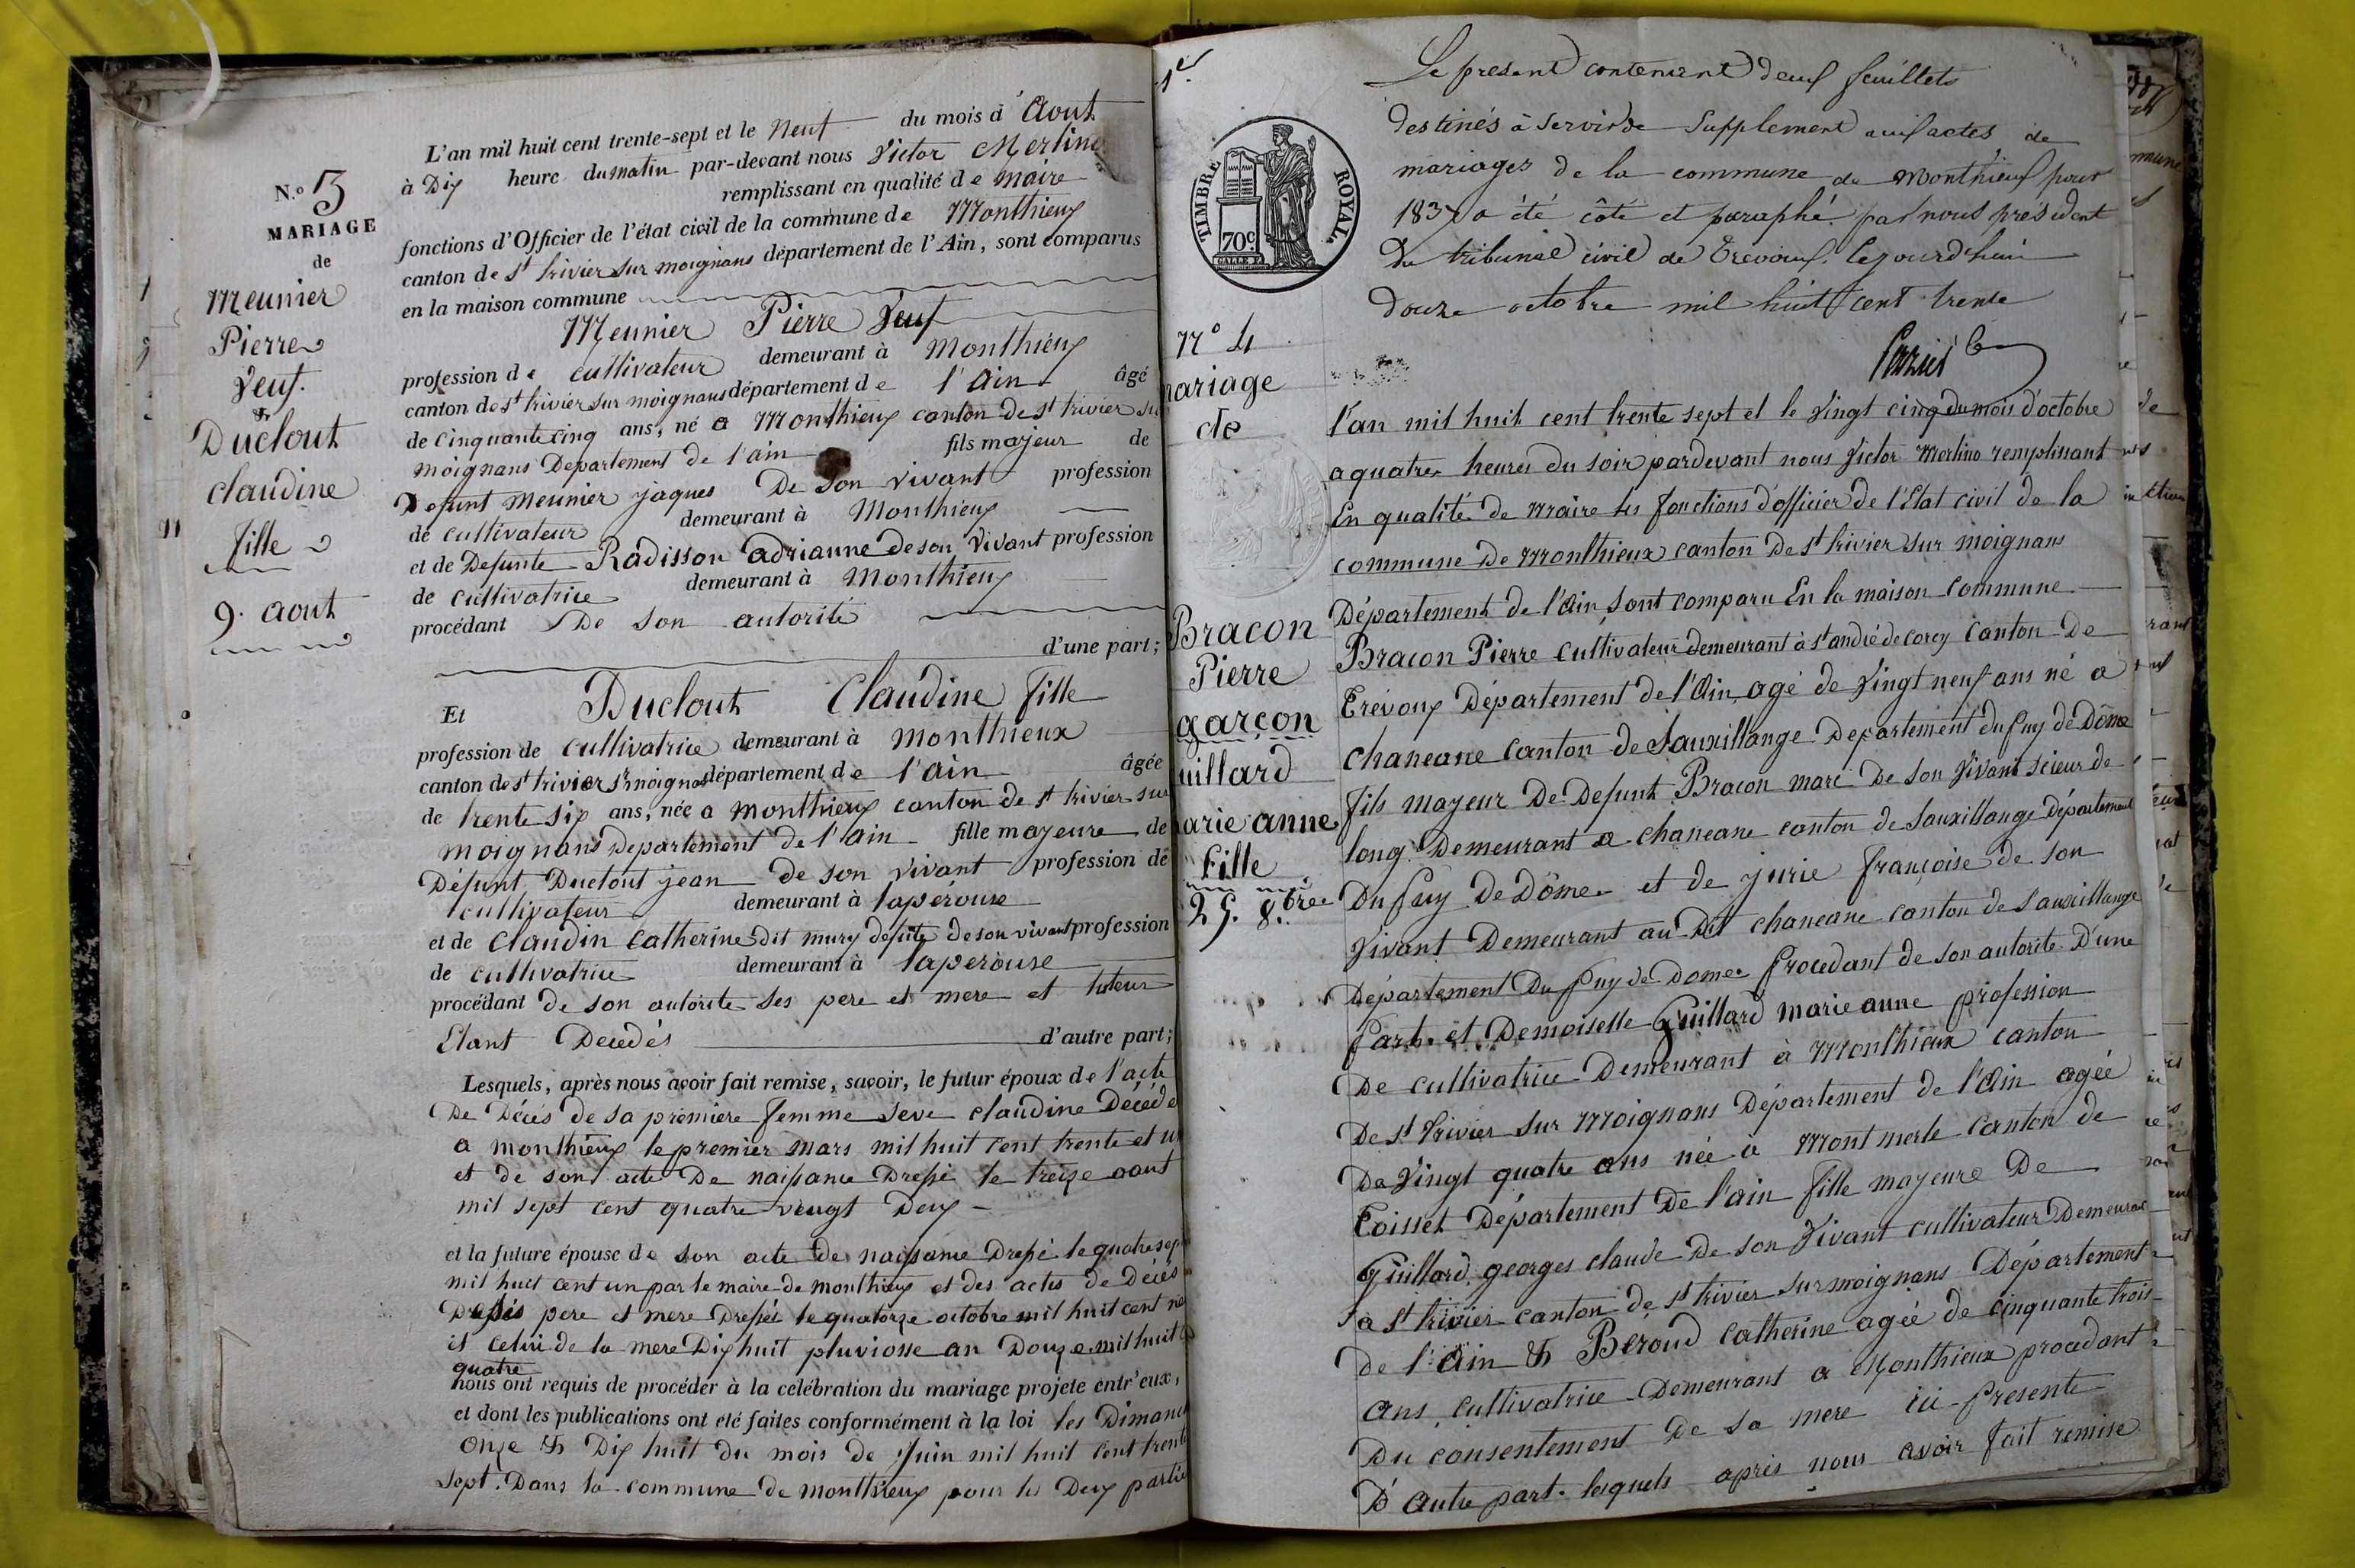 N.o 3
MARIAGE
de
Meunier
Pierre
Veuf.
&
Duclout
Claudine
fille
9. aout
L'an mil huit cent trente-sept et le Neuf du mois d'Aout
à Dix heure du matin par-devant nous Victor Merlino
remplissant en qualité de maire
fonctions d'Officier de l'état civil de la commune de Monthieux
canton de st trivier sur moignans département de l'Ain, sont comparus
en la maison commune
Meunier Pierre Veuf
profession de cultivateur demeurant à Monthieux
canton de st trivier sur moignans département de l'Ain âgé
de Cinquante cinq ans, né a Monthieux canton de st trivier su
moignans Departement de l'ain fils majeur de
Defunt Meunier jaques De son vivant profession
de cultivateur demeurant à Monthieux
et de Defunte Radisson adrianne de son Vivant profession
de cultivatrice demeurant à Monthieux
procédant De son autorité
d'une part;
Et Duclout Claudine fille
profession de cultivatrice demeurant à Monthieux
canton de st trivier sr moignas département de l'Ain âgée
de trente six ans, née a monthieux canton de st trivier sur
moignans Departement de l'ain fille majeure de
Défunt Duclout jean de son vivant profession de
cultivateur demeurant à lapérouse
et de Claudin Catherine dit mury défûte de son vivant profession
de cultivatrice demeurant à lapérouse
procédant de son autorité ses pere et mere et tuteur
Etant Décedés d'autre part;
Lesquels, après nous avoir fait remise, savoir, le futur époux de l'acte
De Décès de sa première femme seve claudine Décéde
a monthieux le premier mars mil huit cent trente et un
et de son acte De naissance Dressé le treize aout
mil sept cent quatre vingt Deux
et la future épouse de son acte de naissance Dressé le quatre sep
mil huit cent un par le maire de monthieux et des actes de Décés
pere et mere Dressé le quatorze octobre mil huit cent ne
et celui de la mere Dix huit pluviosse an Douze mil huit c
quatre
nous ont requis de procéder à la célébration du mariage projeté entr'eux,
et dont les publications ont été faites conformément à la loi les Dimanch
Onze & Dix huit du mois de Juin mil huit cent trente
sept. Dans la commune de monthieux pour les Deux partie
1er
Le présent contenant deux feuillets
destinés à servir de Supplement aux actes de
mariages de la commune de Monthieux pour
1837 a été côté et paraphé par nous président
du tribunal civil de Trevoux. Cejourd'hui
douze octobre mil huit cent trente
TIMBRE ROYAL.
70c
No 4
mariage
de
Bracon
Pierre
garçon
uillard
arie anne
fille
25. 8.bre
l'an mil huit cent trente sept et le Vingt cinq du mois d'octobre
a quatre heures du soir pardevant nous Victor Merlino remplissant
En qualité de Maire les fonctions d'officier de l'Etat civil de la
commune De Monthieux canton De st trivier sur moignans
Département de l'Ain, sont comparu En la maison commune
Bracon Pierre Cultivateur demeurant à st andré de corcy Canton De
Trévoux Département de l'Ain agé de Vingt neuf ans né a
chaneane canton de Sauxillange Departement du Puy de Dôme
fils majeur De Defunt Bracon marc De son Vivant scieur de
long Demeurant a chaneane canton de Sauxillange Département
Du Puy De Dôme et de jurie françoise de son
Vivant Demeurant au Dit chaneane canton de Sauxillange
Département Du Puy de Dome Procedant de son autorité D'une
Part. et Demoiselle Guillard marie anne profession
De cultivatrice Demeurant à Monthieux canton
De st trivier sur Moignans Département de l'Ain agée
De Vingt quatre ans née à Montmerle Canton de
Toisset Département De l'ain fille majeure De
Guillard georges claude De son Vivant cultivateur Demeurant
a st trivier canton de st trivier sur moignans Département
De l'Ain & Beroud Catherine agée de cinquante trois
Ans, Cultivatrice Demeurant a Monthieux procedant
Du consentement De sa mere ici Presente
D'Autre part. lesquels après nous avoir fait remise